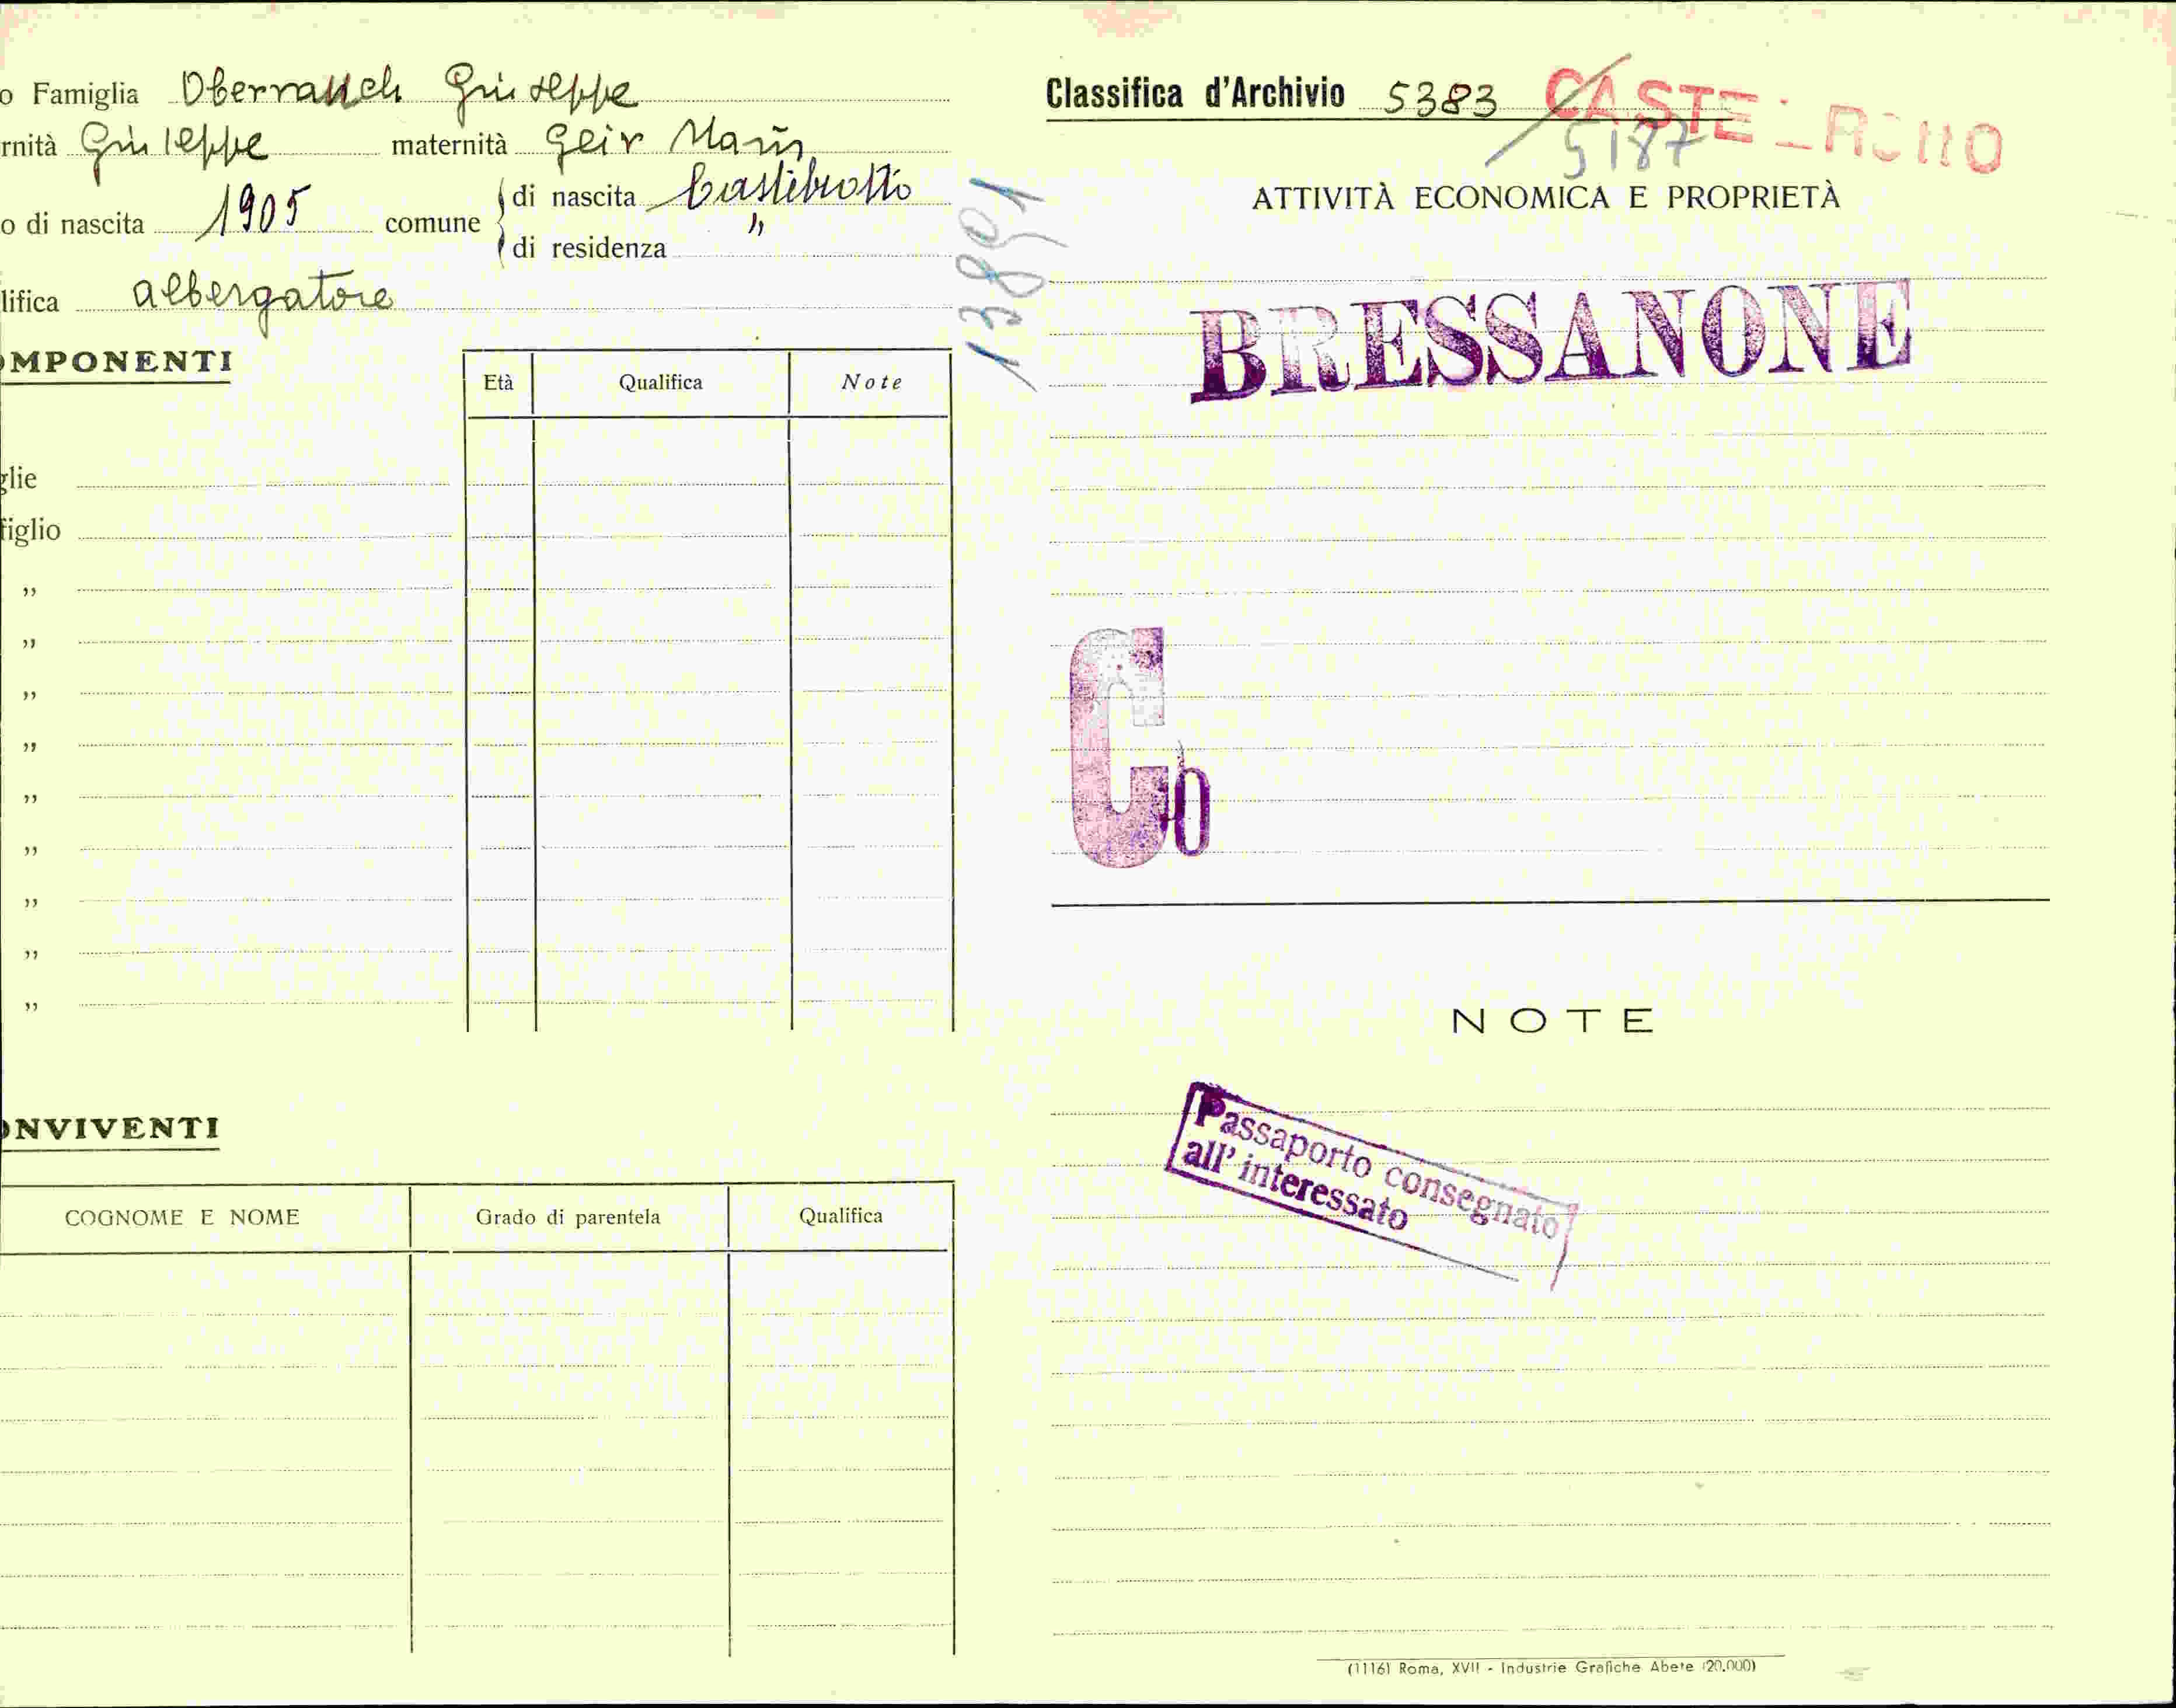 o Famiglia Oberrauch Giuseppe
rnità Giuseppe maternità Geir Maria
o di nascita 1905 comune di nascita Castelrotto
di residenza "
lifica albergatore
OMPONENTI
Età Qualifica Note
glie
figlio
"
"
"
"
"
"
"
"
"
ONVIVENTI
COGNOME E NOME Grado di parentela Qualifica
13891
Classifica d'Archivio 5383 CASTELROTTO
5187
ATTIVITÀ ECONOMICA E PROPRIETÀ
BRESSANONE
C
NOTE
Passaporto consegnato
all' interessato
(1116) Roma, XVII - Industrie Grafiche Abete (20.000)